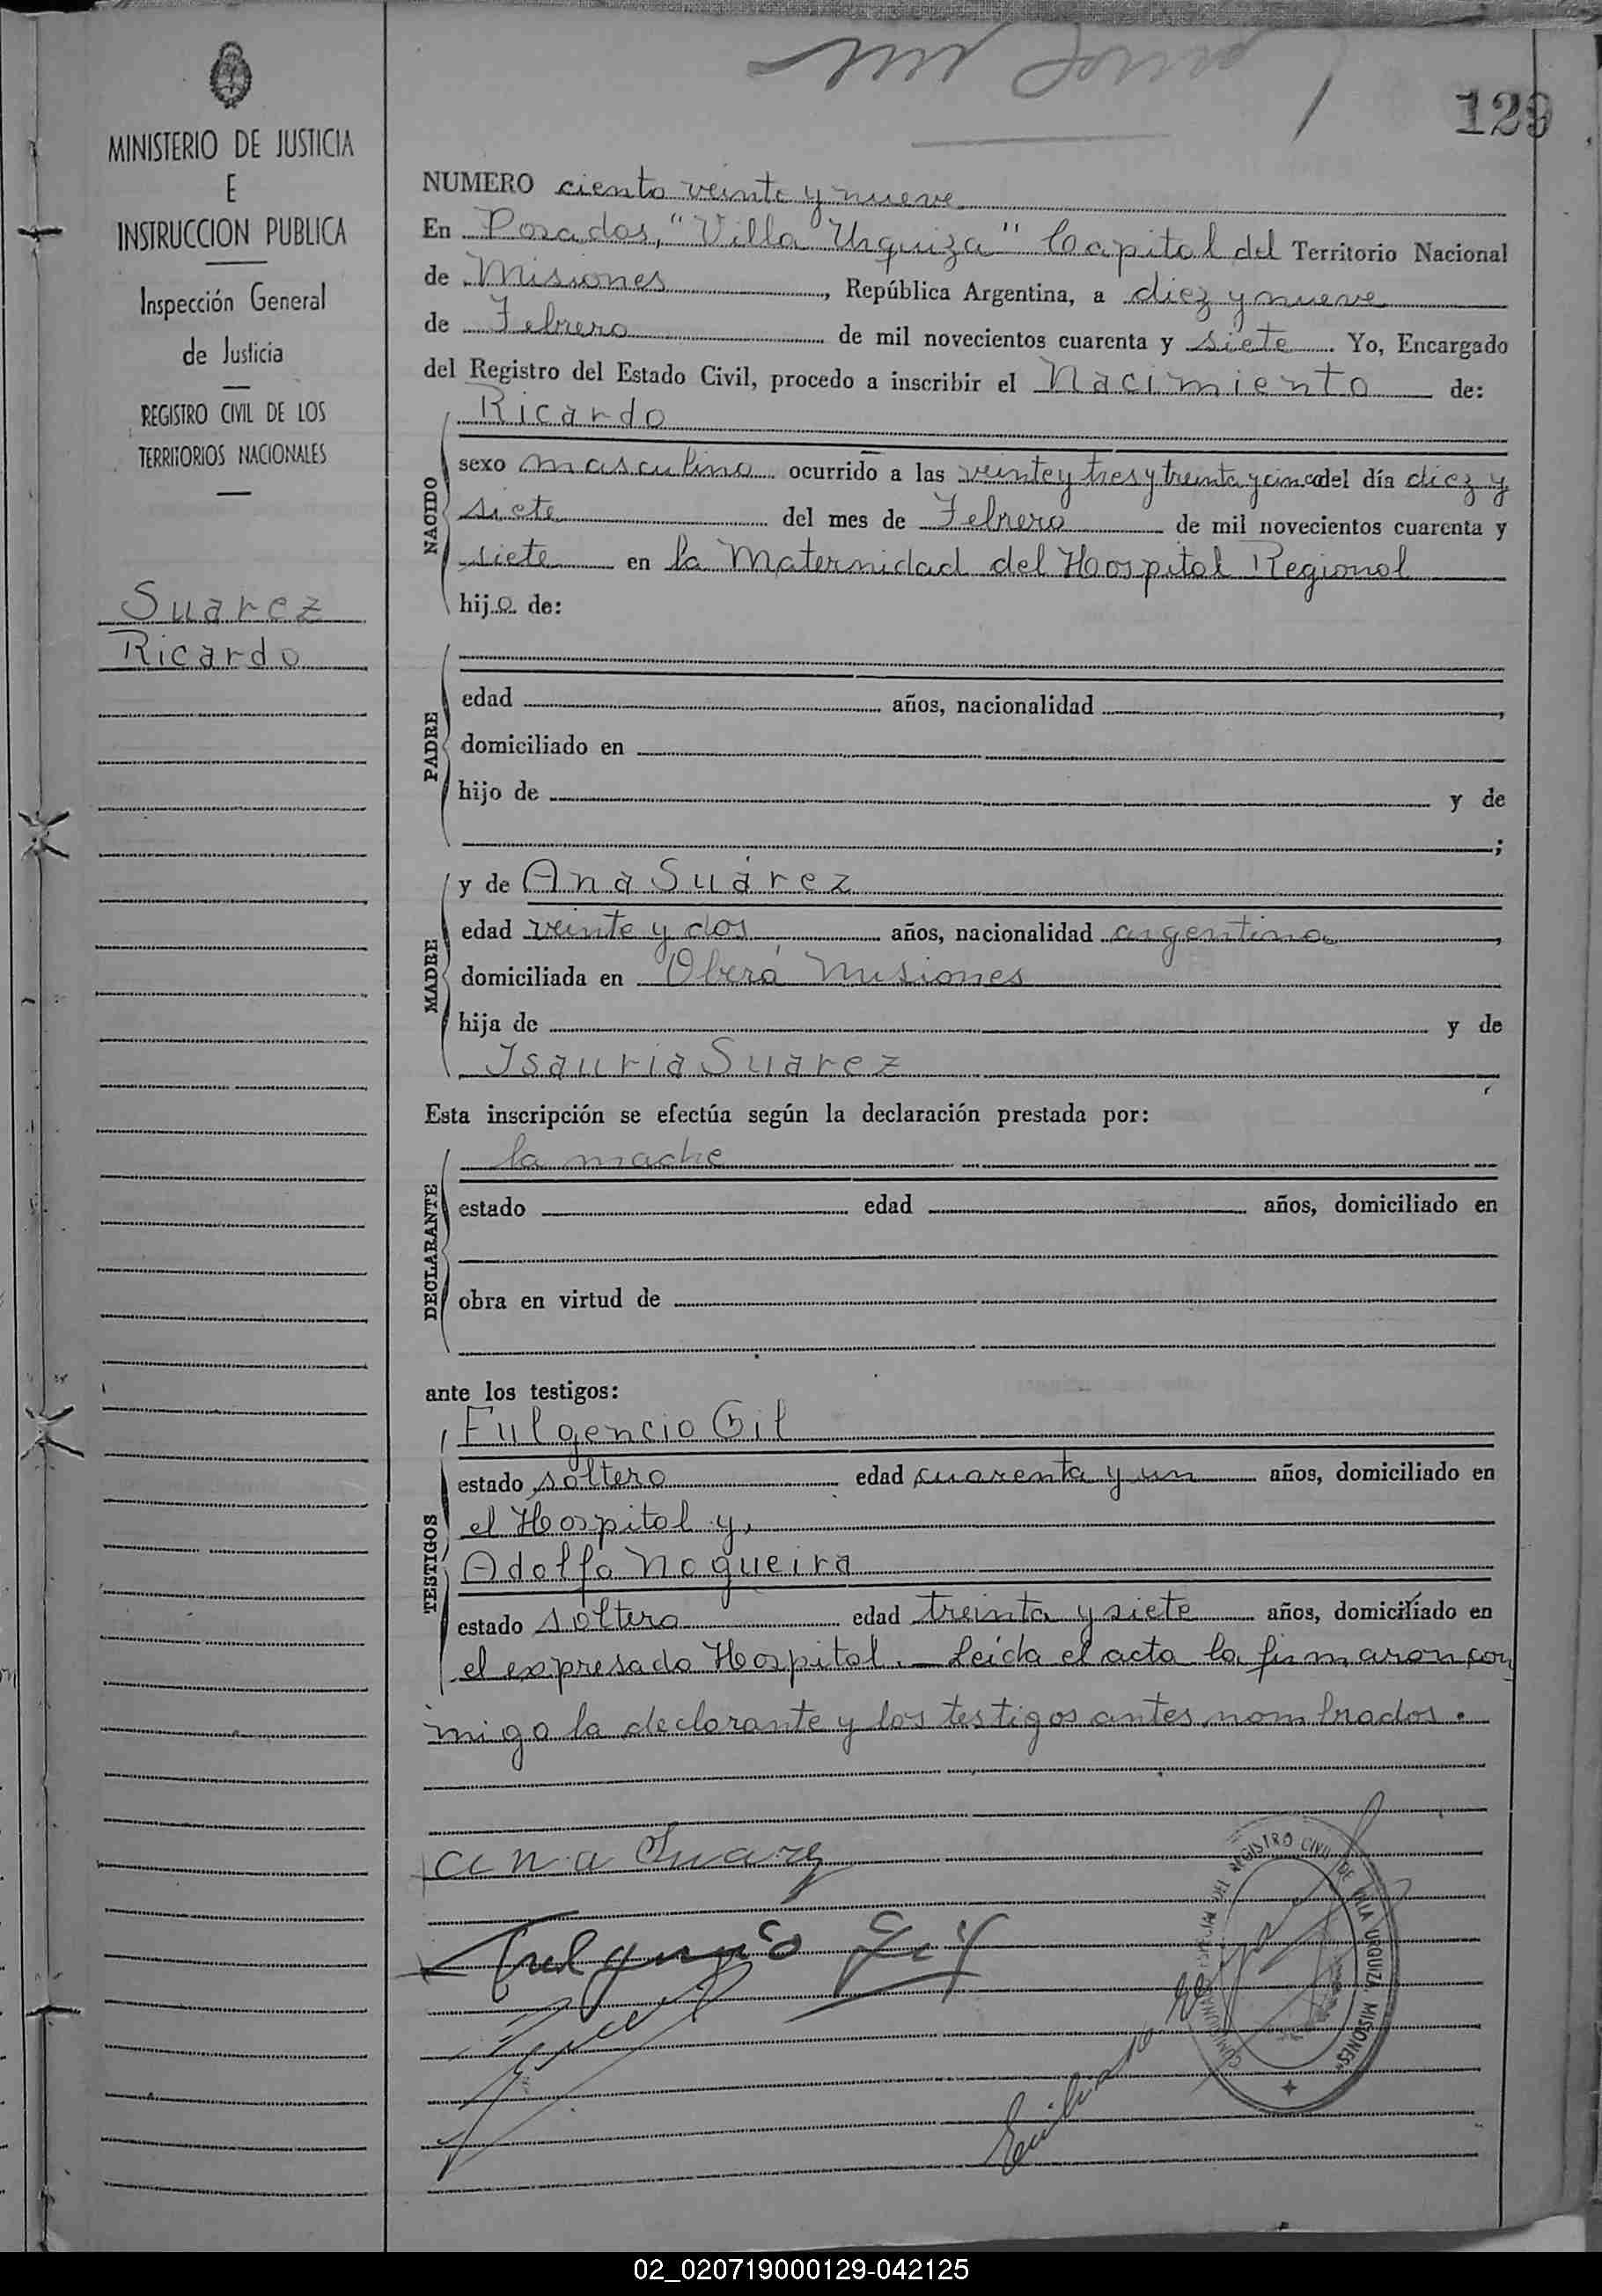 129
MINISTERIO DE JUSTICIA
E
INSTRUCCION PUBLICA
Inspección General
de Justicia
REGISTRO CIVIL DE LOS
TERRITORIOS NACIONALES
Suarez
Ricardo
NUMERO ciento veinte y nueve
En Posadas, "Villa Urquiza" Capital del Territorio Nacional
de Misiones, República Argentina, a diez y nueve
de Febrero de mil novecientos cuarenta y siete. Yo, Encargado
del Registro del Estado Civil, procedo a inscribir el Nacimiento de:
NACIDO
Ricardo
sexo masculino ocurrido a las veinte y tres y treinta y cinco del día diez y
siete del mes de Febrero de mil novecientos cuarenta y
siete en la Maternidad del Hospital Regional
hijo de:
PADRE
edad años, nacionalidad ,
domiciliado en
hijo de y de
;
MADRE
y de Ana Suárez
edad veinte y dos años, nacionalidad argentina,
domiciliada en Oberá Misiones
hija de y de
Isauria Suarez
Esta inscripción se efectúa según la declaración prestada por:
DECLARANTE
la madre
estado edad años, domiciliado en
obra en virtud de
ante los testigos:
TESTIGOS
Fulgencio Gil
estado soltero edad cuarenta y un años, domiciliado en
el Hospital y,
Adolfo Nogueira
estado soltero edad treinta y siete años, domiciliado en
el expresado Hospital. — Leída el acta la firmaron con
migo la declarante y los testigos antes nombrados.
ana Suarez
Fulgencio Gil
DEL REGISTRO CIVIL DE VILLA URQUIZA, MISIONES
02_020719000129-042125